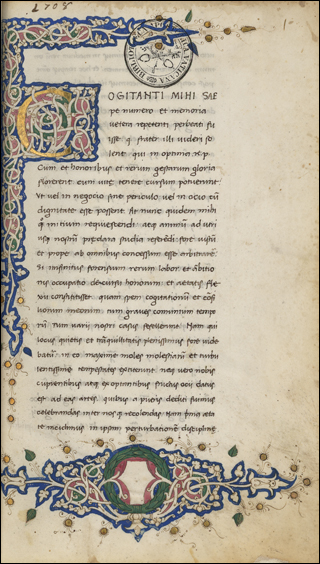 1708
COGITANTI MIHI SAE
pe numero et memoria
uetera repetenti perbeati fu
isse q̃ frater illi uideri so
lent qui in optima re p
Cum et honoribus et rerum gestarum gloria
florerent eum uite tenere cursum potuerunt
Vt uel in negocio sine periculo uel in ocio cũ
dignitate esse possent Ac nunc quidem mihi
q̃ in itium requiescendi atq animũ ad utri
usq nostrũ preclara studia referẽdi fore iustũ
et prope ab omnibus concessum esse arbitrarer
Si infinitus forensium rerum labor et ãbitio
nis occupatio decursu honorum et aetatis fle
xu constitisset quam spem cogitationũ et cõsi
liorum meorum tum graues comunium tempo
rũ Tum uarii nostri casus fefellerunt Nam qui
locus quietis et trãquillitatis plenissimus fore uide
batur in eo maxime moles molestiarũ et turbu
lentissime tempestates extiterunt neq uero nobis
cupientibus atq exoptantibus fructus ocii datus
est ad eas artes quibus a pueris dediti fuimus
celebrandas inter nos q recolendas Nam prima aeta
te incidimus in ipsam perturbationẽ discipline